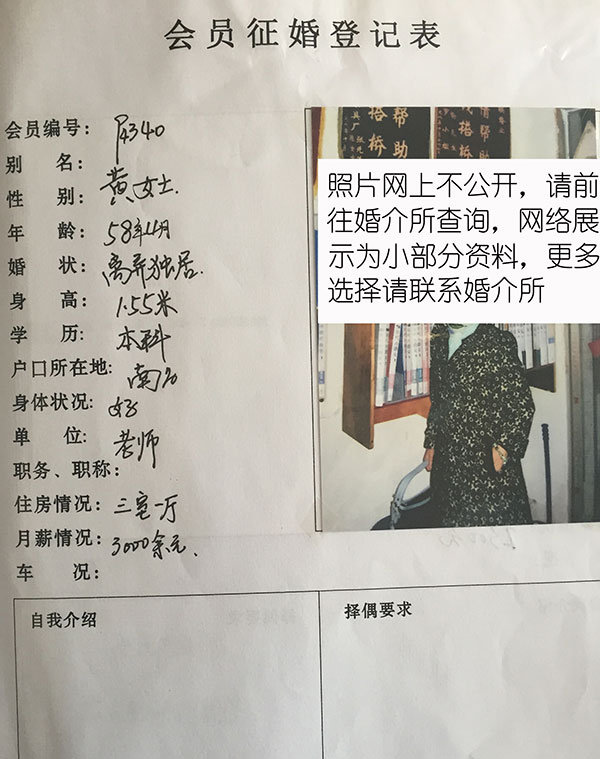 会员征婚登记表
会员编号: P4340
别 名: 黄女士.
性 别:
年 龄: 58年
婚 状: 离异独居.
身 高: 1.55米
学 历: 本科
户口所在地:
身体状况: 好
单 位: 老师
职务、职称:
住房情况: 三室一厅
月薪情况: 3000余元、
车 况:
自我介绍
择偶要求
帮助
搭桥
帮助
搭桥
照片网上不公开，请前
往婚介所查询，网络展
示为小部分资料，更多
选择请联系婚介所